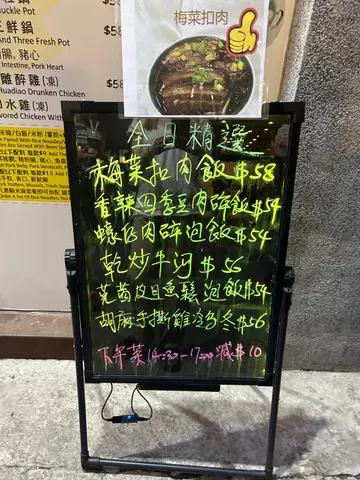 梅菜扣肉
uckle Pot
三鮮鍋
And Three Fresh Pot
腸, 豬心
Intestine, Pork Heart
$5
雕醉雞(凍)
Huadiao Drunken Chicken
口水雞(凍)
avored Chicken With
$58
全日精選
梅菜扣肉飯$58
香辣四季豆肉碎飯$54
蠔仔肉碎泡飯$54
乾炒牛河$56
芫茜皮旦魚鬆泡飯$54
胡麻手撕雞冷烏冬$56
下午茶14:30-17:00減$10